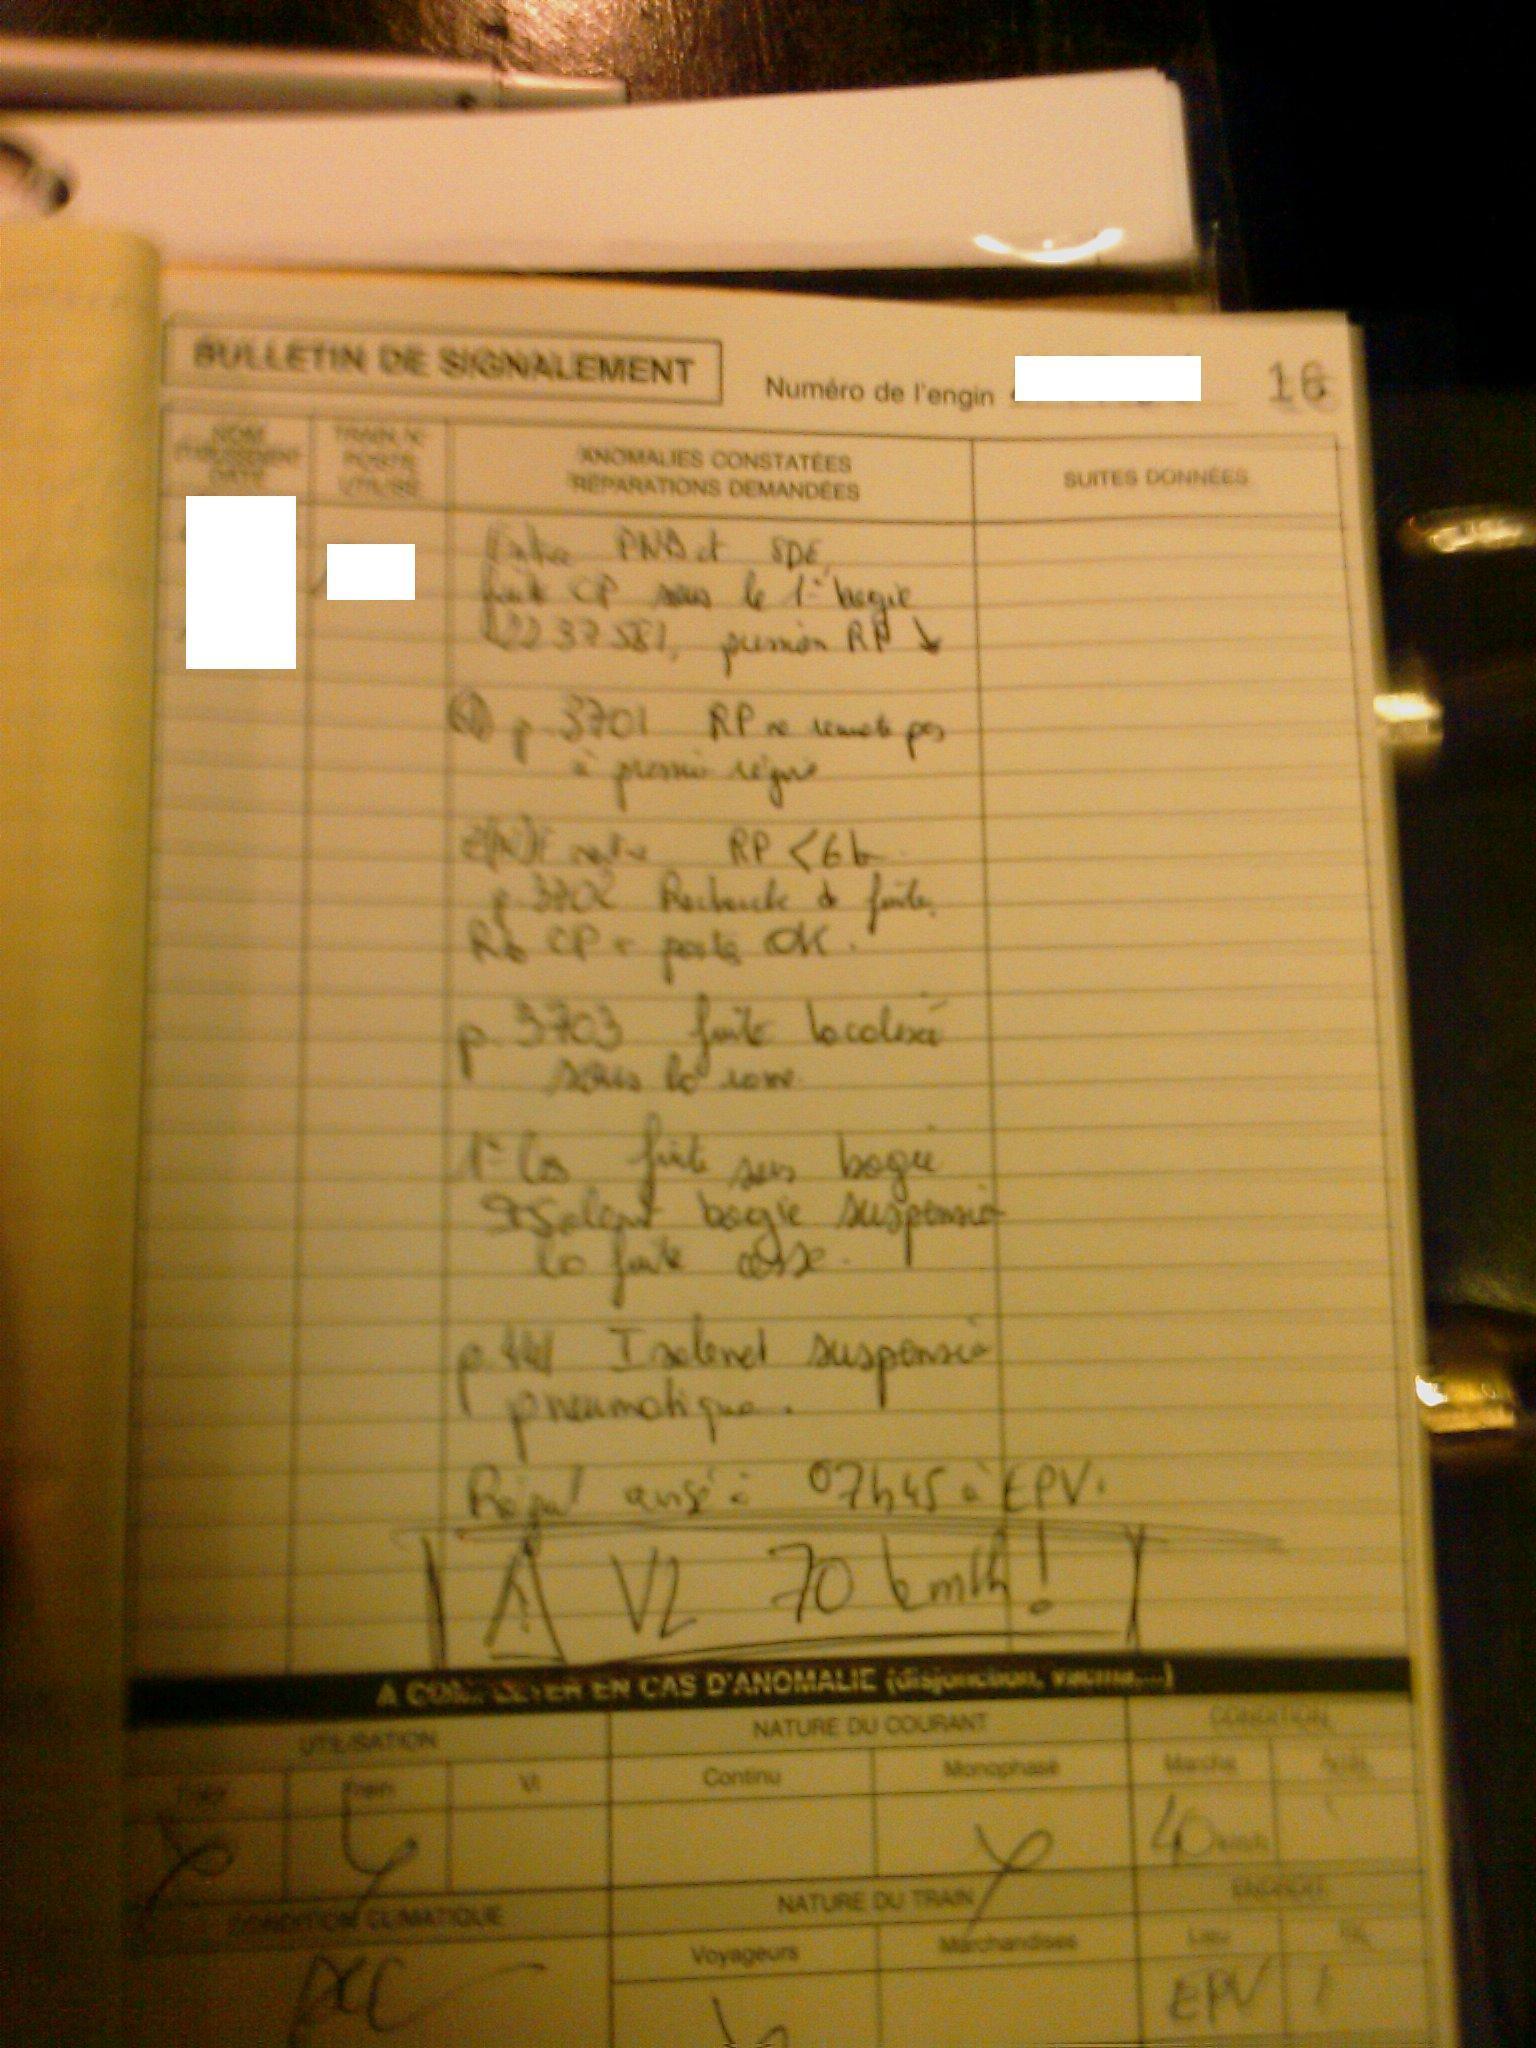 BULLETIN DE SIGNALEMENT
Numéro de l'engin
16
NOM
ETABLISSEMENT
DATE
TRAIN N°
POSTE
UTILISÉ
ANOMALIES CONSTATÉES
RÉPARATIONS DEMANDÉES
SUITES DONNÉES
Entre PNB et SDE,
fuite CP sous le 1er bogie
Z22 37581, pression RP ↘
p. 3701 RP ne remonte pas
à pression régime
RP < 6 b
p. 3702 Recherche de fuite,
Rb CP + portes OK.
p. 3703 fuite localisée
sous la rame
1er Cas fuite sous bogie
Isolant bogie suspension
la fuite cesse.
p. 441 Isolement suspension
pneumatique.
Régul avisé à 07h45 à EPV.
VL 70 km/h !
A COMPLETER EN CAS D'ANOMALIE (disjonction, vacma,...)
UTILISATION
NATURE DU COURANT
CONDITION
Trac
Frein
VI
Continu
Monophasé
Marche
40 km/h
CONDITION CLIMATIQUE
NATURE DU TRAIN
Voyageurs
Marchandises
Lieu
EPV